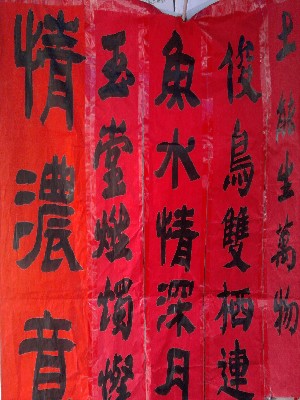 土能生萬物
俊鳥雙栖連
魚水情深月
玉堂燃燭
情濃音